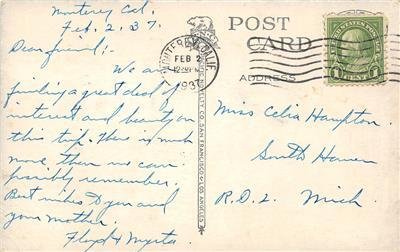 Monterey Cal.
Feb. 2, 37.
Dear friend:-
We are
finding a great deal of
interest and beauty on
this trip. There is much
more than we can
possibly remember.
Best wishes to you and
your mother.
Floyd & Myrta
POST CARD
ADDRESS
MONTEREY, CALIF.
FEB 2
1937
UNITED STATES POSTAGE
1 CENT 1
CO. SAN FRANCISCO & LOS ANGELES
Miss Celia Hampton
South Haven
R.D. 2 Mich